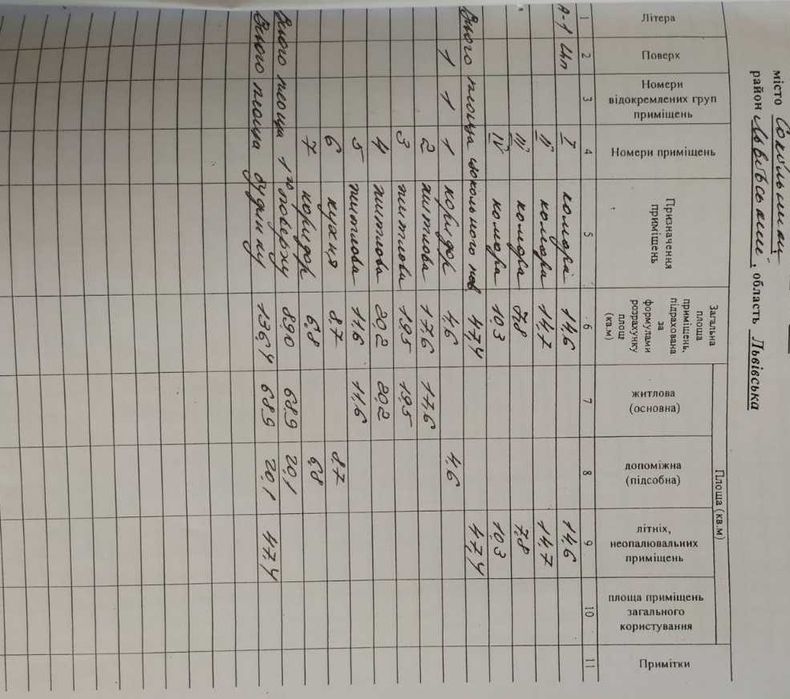 місто Сокільники
район Львівський, область Львівська
Літера
Поверх
Номери відокремлених груп приміщень
Номери приміщень
Призначення приміщень
Загальна площа приміщень, підрахована за формулами розрахунку площ (кв.м)
Площа (кв.м)
житлова (основна)
допоміжна (підсобна)
літніх, неопалювальних приміщень
площа приміщень загального користування
Примітки
1 2 3 4 5 6 7 8 9 10 11
А-1 цп I комора 14,6 14,6
II комора 14,7 14,7
III комора 7,8 7,8
IV комора 10,3 10,3
Всього площа цокольного пов 47,4 47,4
1 1 1 коридор 4,6 4,6
2 житлова 17,6 17,6
3 житлова 19,5 19,5
4 житлова 20,2 20,2
5 житлова 11,6 11,6
6 кухня 8,7 8,7
7 коридор 6,8 6,8
Всього площа 1го поверху 89,0 68,9 20,1
Всього площа будинку 136,4 68,9 20,1 47,4